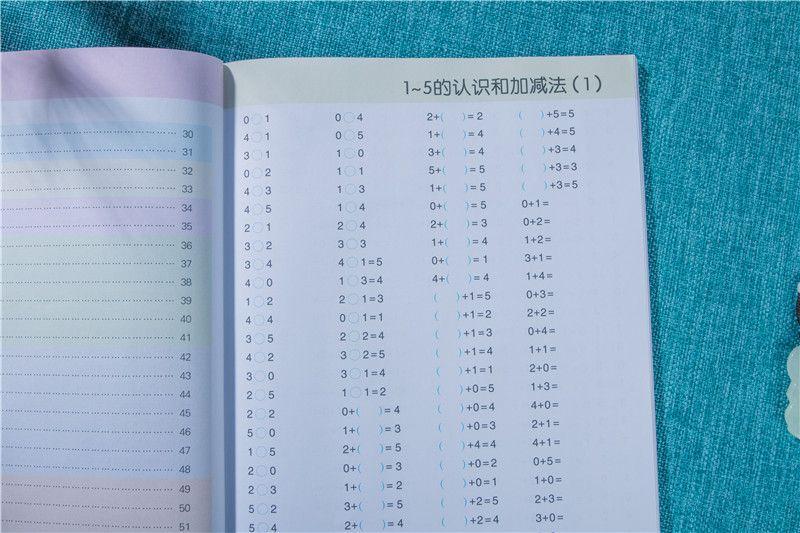 30
31
32
33
34
35
36
37
38
39
40
41
42
43
44
45
46
47
48
49
50
51
1~5的认识和加减法(1)
0○1
4○1
3○1
0○2
4○3
4○5
2○1
3○2
3○4
4○0
1○2
4○4
3○5
4○2
3○0
2○5
2○2
5○0
1○5
2○0
2○3
5○2
5○4
0○4
0○5
1○0
1○1
1○3
1○4
2○4
3○3
4○1=5
1○3=4
2○1=3
0○1=1
2○2=4
3○2=5
3○1=4
1○1=2
0+( )=4
1+( )=3
2+( )=5
0+( )=3
1+( )=2
3+( )=5
2+( )=4
2+( )=2
1+( )=4
3+( )=4
5+( )=5
1+( )=5
0+( )=5
2+( )=3
1+( )=4
0+( )=1
4+( )=4
( )+1=5
( )+1=2
( )+1=3
( )+1=4
( )+1=1
( )+0=5
( )+0=4
( )+0=3
( )+4=4
( )+0=2
( )+0=1
( )+2=5
( )+2=4
( )+5=5
( )+4=5
( )+3=4
( )+3=3
( )+3=5
0+1=
0+2=
1+2=
3+1=
1+4=
0+3=
2+2=
0+4=
1+1=
2+0=
1+3=
4+0=
2+1=
4+1=
0+5=
1+0=
2+3=
3+0=